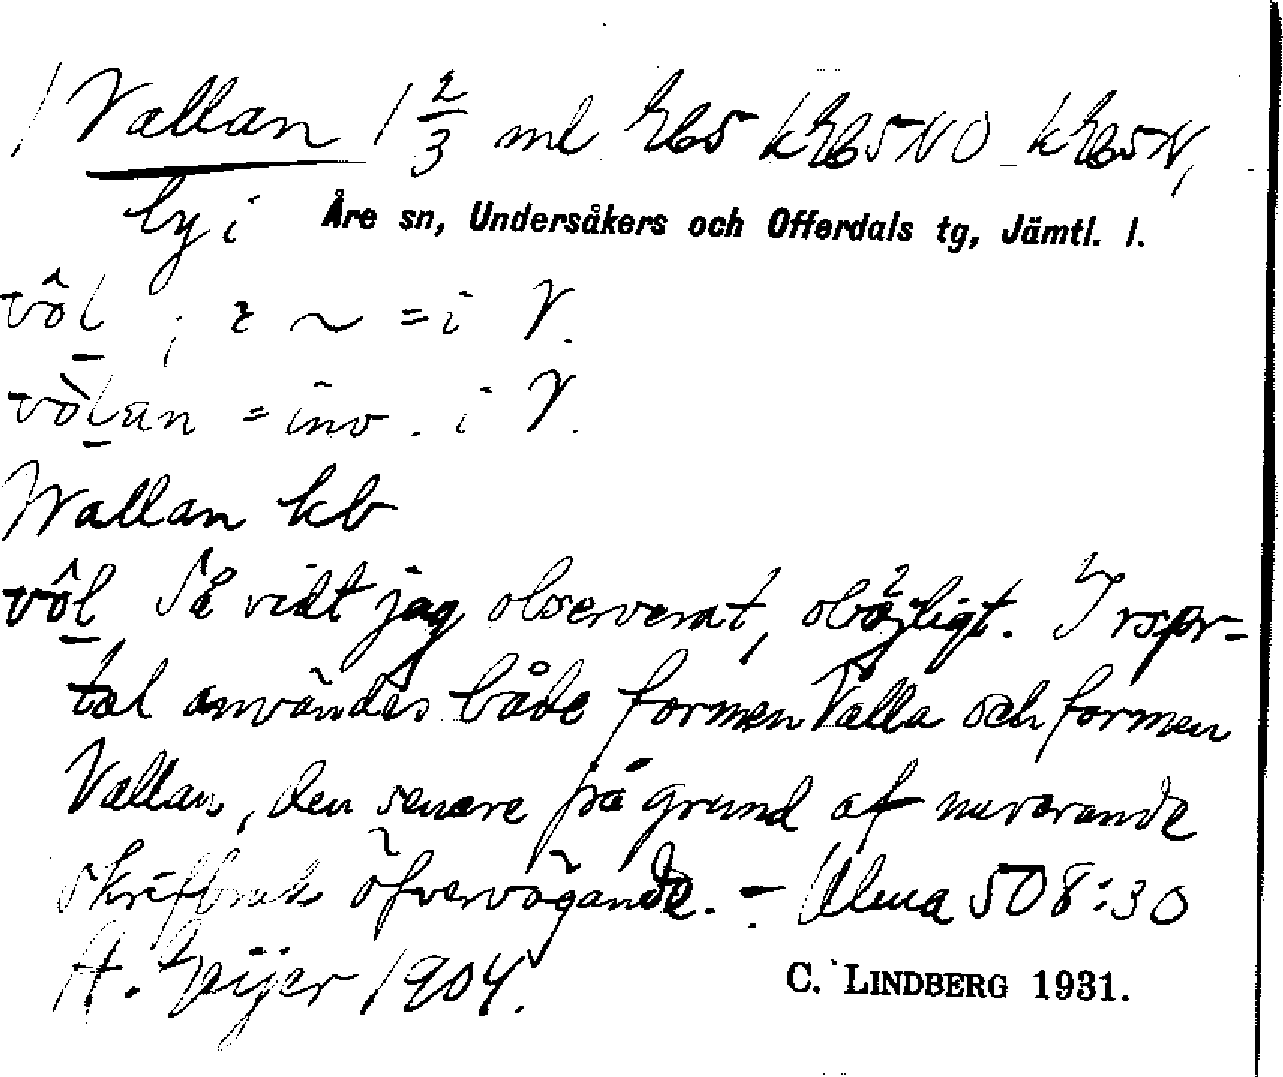 1 Vallan 1 2/3 ml
by i Åre sn, Undersåkers och Offerdals tg, Jämtl. l.
vôl ; i ~ = i V.
vòlan = inv. i V.
Wallan kb
vôl Så vidt jag observerat, oböjligt. I rspr-
tal användes både formen Valla och formen
Vallan, den senare på grund af nuvarande
skriftbruk öfvervägande. - Ulma 508:30
H. Geijer 1904.
C. LINDBERG 1931.